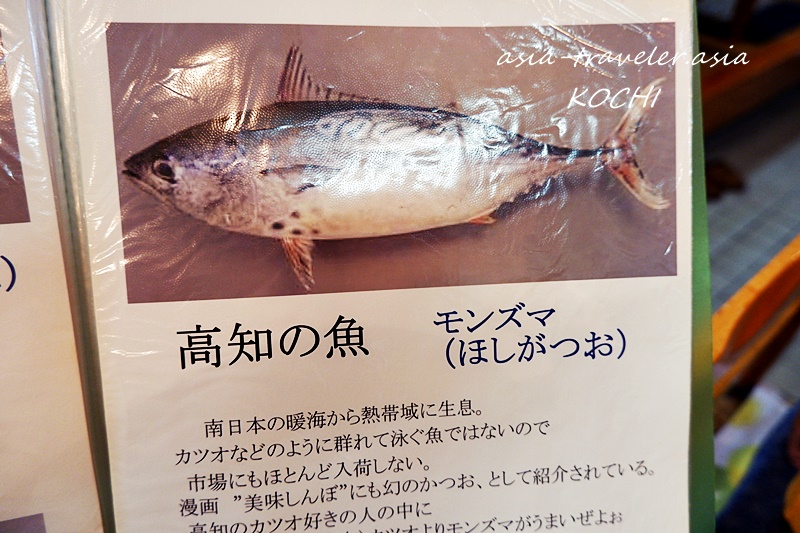 asia-traveler.asia
KOCHI
高知の魚
モンズマ
(ほしがつお)
南日本の暖海から熱帯域に生息。
カツオなどのように群れて泳ぐ魚ではないので
市場にもほとんど入荷しない。
漫画 ”美味しんぼ”にも幻のかつお、として紹介されている。
高知のカツオ好きの人の中に
カツオよりモンズマがうまいぜよぉ
)